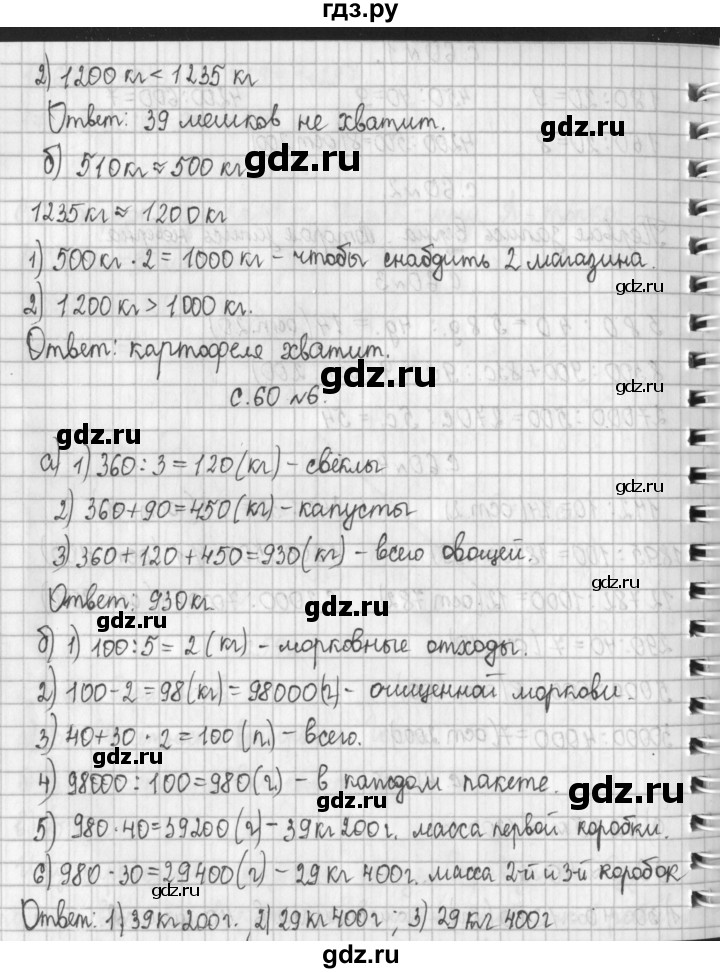 гдз.ру
2) 1200 кг < 1235 кг
Ответ: 39 мешков не хватит.
gdz.ru
gdz.ru
б) 510 кг ≈ 500 кг
1235 кг ≈ 1200 кг
1) 500 кг · 2 = 1000 кг – чтобы снабдить 2 магазина.
gdz.ru
2) 1200 кг > 1000 кг.
Ответ: картофеля хватит.
gdz.ru
gdz.ru
с. 60 №6.
gdz.ru
а) 1) 360 : 3 = 120 (кг) – свёклы
gdz.ru
2) 360 + 90 = 450 (кг) – капусты
3) 360 + 120 + 450 = 930 (кг) – всего овощей.
gdz.ru
Ответ: 930 кг
gdz.ru
gdz.ru
б) 1) 100 : 5 = 2 (кг) – морковные отходы.
2) 100 – 2 = 98 (кг) = 98000 (г) – очищенной моркови.
3) 40 + 30 · 2 = 100 (п.) – всего.
gdz.ru
4) 98000 : 100 = 980 (г) – в каждом пакете.
gdz.ru
gdz.ru
5) 980 · 40 = 39200 (г) – 39 кг 200 г. масса первой коробки.
6) 980 · 30 = 29400 (г) – 29 кг 400 г. масса 2-й и 3-й коробок
gdz.ru
Ответ: 1) 39 кг 200 г. 2) 29 кг 400 г ; 3) 29 кг 400 г
gdz.ru
gdz.ru